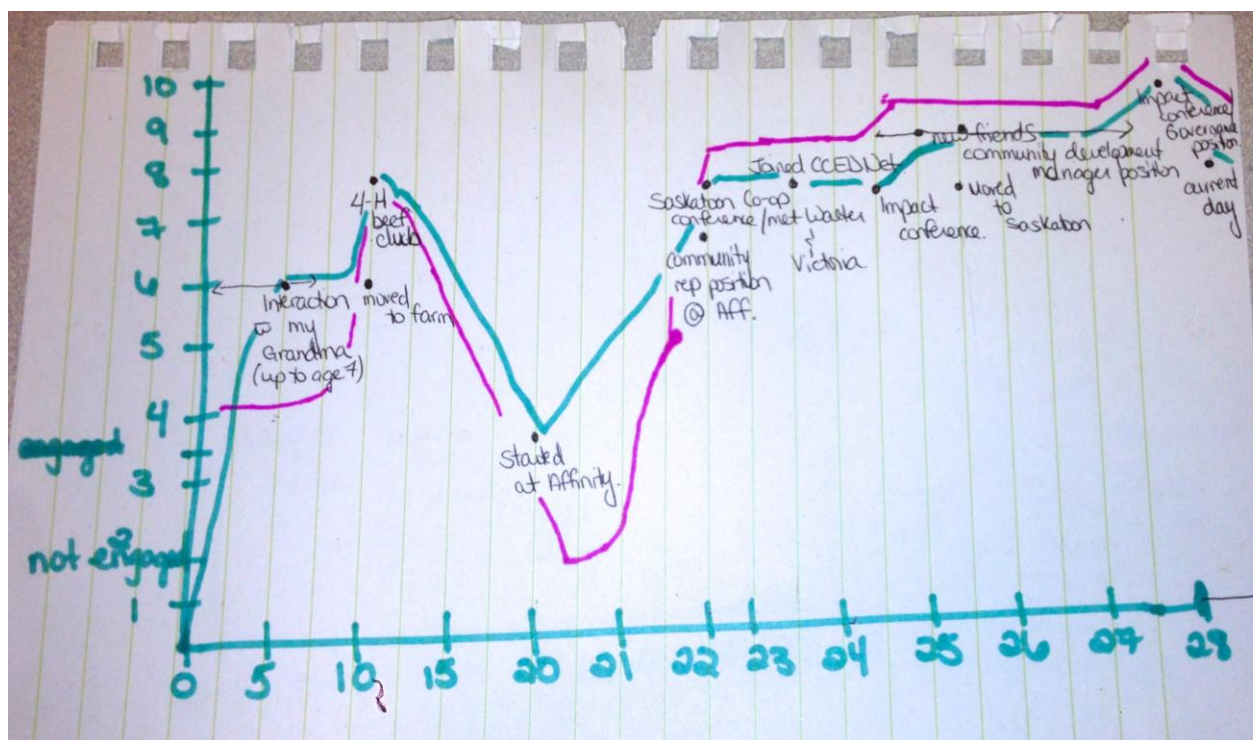 10
9
8
7
6
5
4
engaged
3
2
not engaged
1
0 5 10 15 20 21 22 23 24 25 26 27 28
Interaction
w my
Grandma
(up to age 7)
4-H
beef
club
moved
to farm
Started
at Affinity.
Saskatoon Co-op
conference/met Walter
&
Victoria
community
rep position
@ Aff.
Joined CCEDNet
Impact
conference.
new friends
community development
manager position
Moved
to
Saskatoon
Impact
conference/
Governance
position
current
day